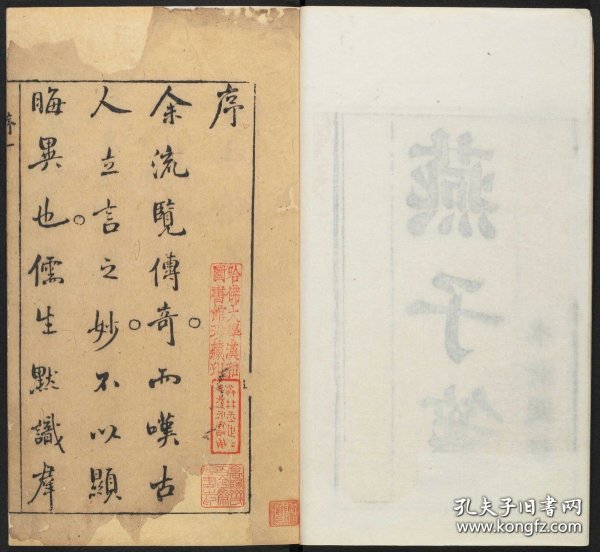 序
余流覧傳奇而嘆古
人立言之妙不以顯
晦異也儒生默識羣
序一
哈佛大學漢和
圖書館珍藏印
燕子箋
孔夫子旧书网
kongfz.com